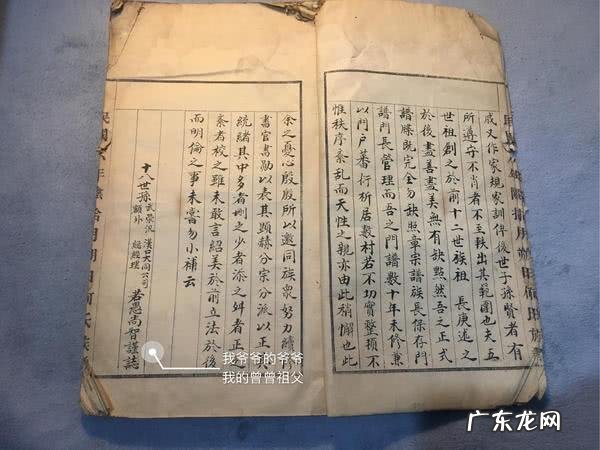 成又作家規家訓俾後世子孫賢者有
所遵守不肖者不至軼出其範圍也夫五
世祖創之於前十二世族祖 長庚述之
於後盡善盡美無有缺點然吾之正式
譜牒既完全勿缺照章宗譜族長保存門
譜門長管理而吾之門譜數十年未修兼
以門戶蕃衍析居數村若不切實整頓不
惟秩序紊亂而天性之親亦由此稍懈也此
余之憂心殷殷所以邀同族衆努力續修
書官書勛以表其顯赫分宗分派以正其
統緒其中多者刪之少者添之舛者正之
紊者校之雖未敢言紹美於前立法於後
而明倫之事未嘗勿小補云
十八世孫
漢口大尚公司
總經理
若愚尚智謹誌
我爷爷的爷爷
我的曾曾祖父
广东龙网